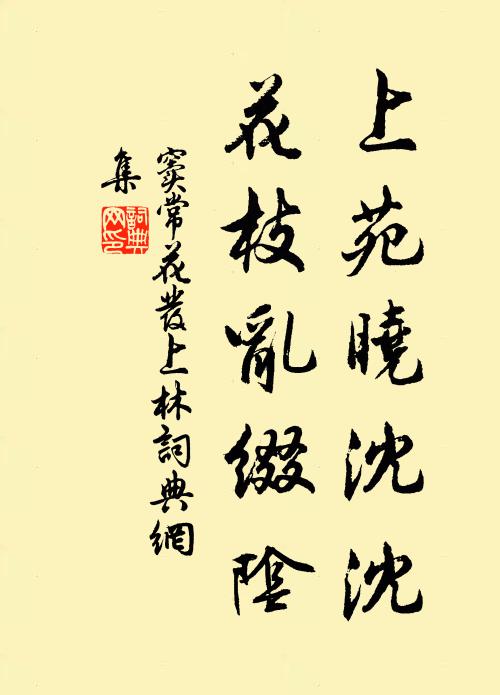 上苑曉沈沈
花枝亂綴陰
窦常花發上林詞典網
集
詞典
网印